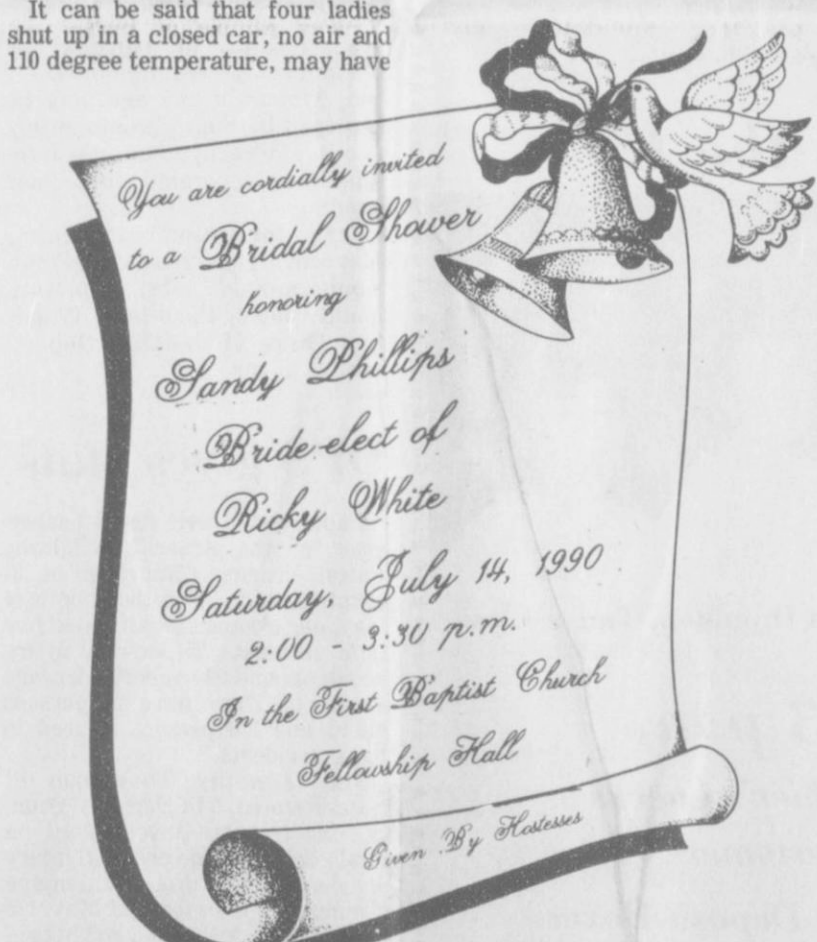 It can be said that four ladies
shut up in a closed car, no air and
110 degree temperature, may have
You are cordially invited
to a Bridal Shower
honoring
Sandy Phillips
Bride-elect of
Ricky White
Saturday, July 14, 1990
2:00 - 3:30 p.m.
In the First Baptist Church
Fellowship Hall
Given By Hostesses